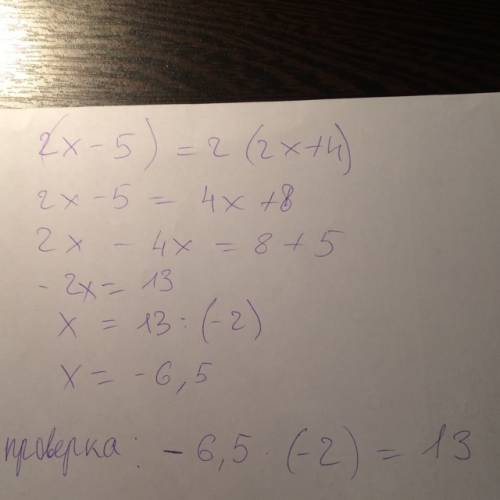 (2x-5) = 2 (2x+4)
2x-5 = 4x+8
2x - 4x = 8+5
-2x = 13
x = 13 : (-2)
x = -6,5
проверка: -6,5 · (-2) = 13